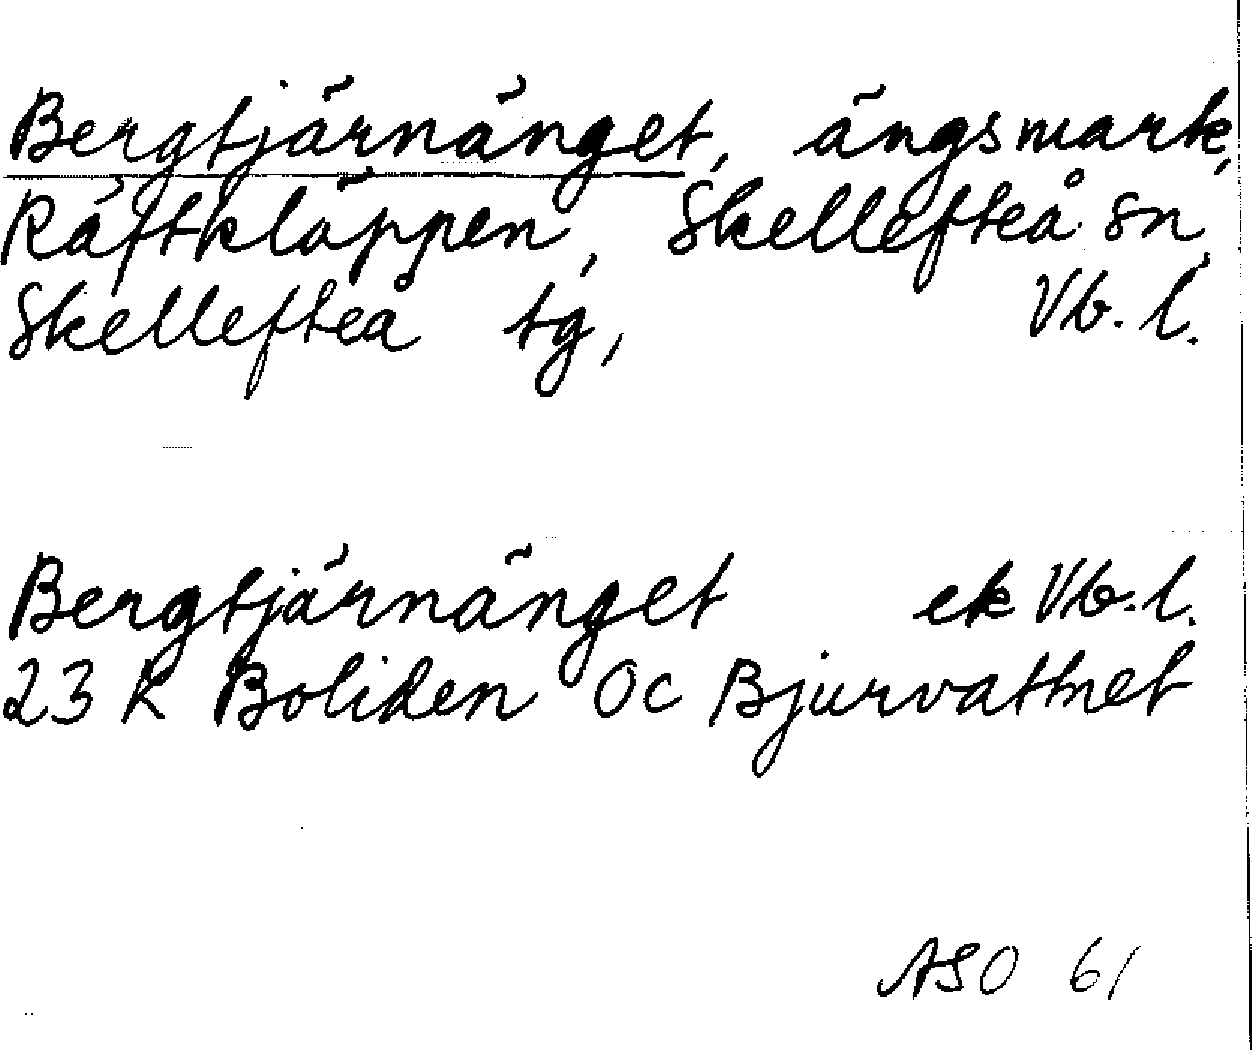 Bergtjärnänget, ängsmark,
Räftkläppen, Skellefteå sn,
Skellefteå tg, Vb. l.
Bergtjärnänget ek Vb. l.
23 K Boliden 0c Bjurvattnet
ASO 61